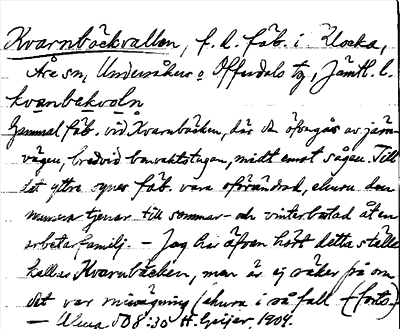 Kvarnbäckvallen, f. d. fäb. i Klocka,
Åre sn, Undersåkers o Offerdals tg, Jämtl. l.
kvanbakvoln
Gammal fäb. vid Kvarnbäcken, där den öfvergås av järn-
vägen, bredvid banvaktstugan, midt emot sågen. Till
det yttre synes fäb. vara oförändrad, ehuru den
numera tjenar till sommar- och vinterbostad åt en
arbetarfamilj. — Jag har äfven hört detta ställe
kallas Kvarnbäcken, men är ej säker på om
det var missägning (ehuru i så fall (forts.)
— Ulma 508:30 H. Geijer, 1909.